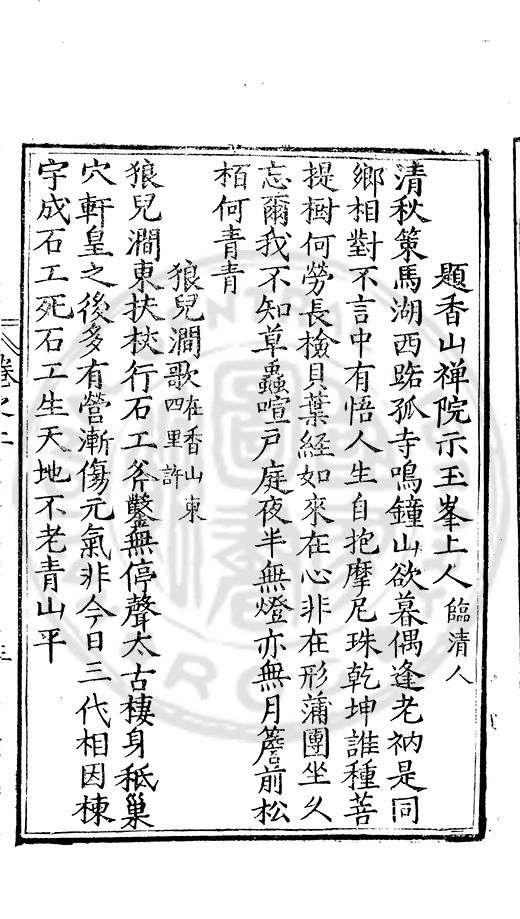 題香山禅院示玉峯上人臨清人
清秋策馬湖西路孤寺鳴鐘山欲暮偶逢老衲是同
鄉相對不言中有悟人生自抱摩尼珠乾坤誰種菩
提樹何勞長檢貝葉経如來在心非在形蒲團坐久
忘爾我不知草蟲喧戸庭夜半無燈亦無月簷前松
栢何青青
狼兒澗歌在香山東四里許
狼兒澗東扶杖行石工斧鑿無停聲太古棲身秪巢
穴軒皇之後多有營漸傷元氣非今日三代相因棟
宇成石工死石工生天地不老青山平
卷之二